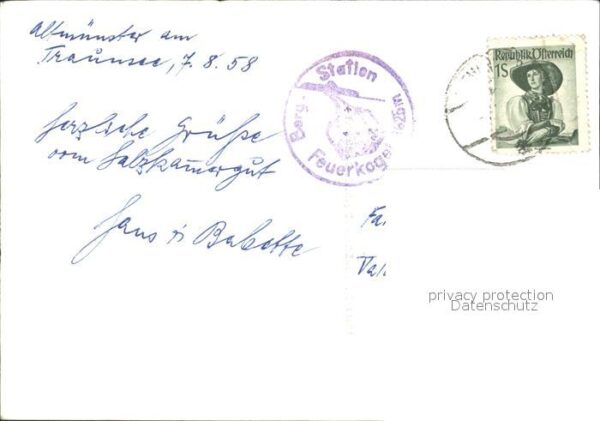 Altmünster am
Traunsee, 7.8.58
herzliche Grüße
vom Salzkammergut
Hans & Babette
Berg-Station
Feuerkogel
Republik Österreich
1S
Fa.
privacy protection
Datenschutz